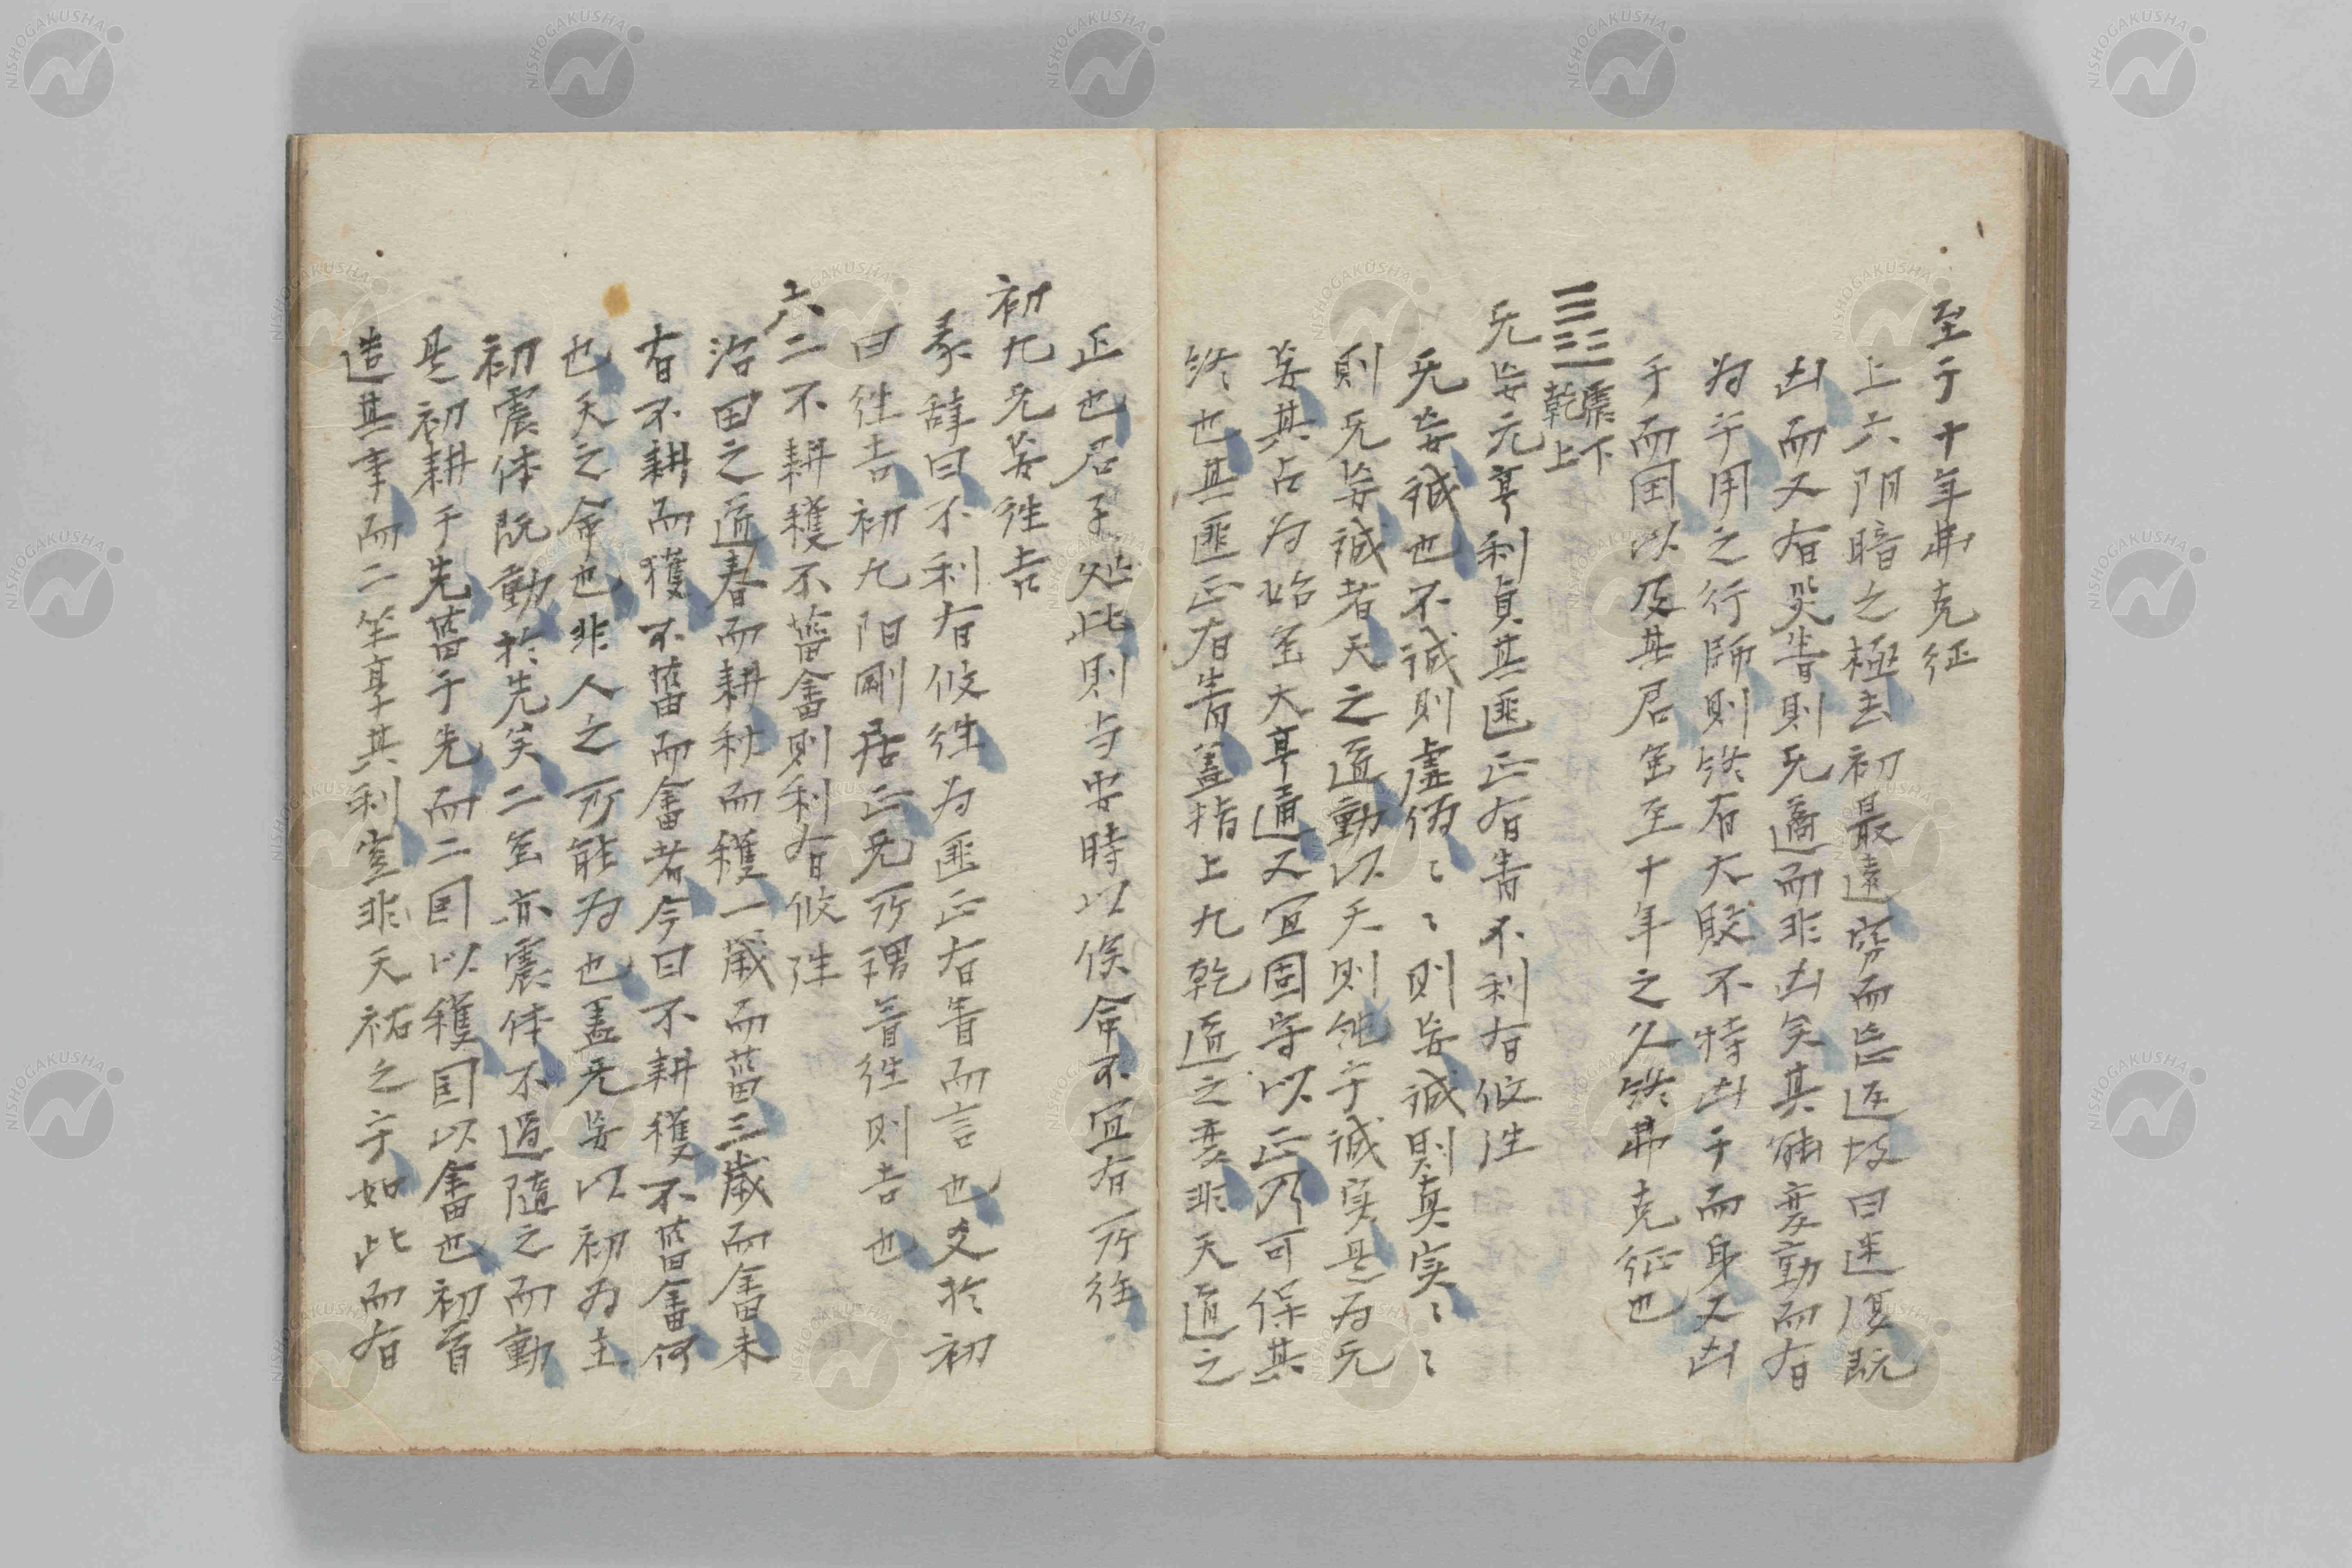 至于十年弗克征
上六阴暗之極去初最遠窮而忘返故曰迷復既
凶而又有災眚則无適而非凶矣其能変動而有
为乎用之行師則終有大敗不特凶于而身又凶
于而国以及其君至十年之久終弗克征也
䷘震下乾上
无妄元亨利貞其匪正有眚不利有攸往
无妄誠也不誠則虚偽〻〻則妄誠則真实〻〻
則无妄誠者天之道動以天則純乎誠实是为无
妄其占为始至大亨通又宜固守以正乃可保其
終也其匪正有眚蓋指上九乾道之変非天道之
正也君子処此則与安時以俟命不宜有所往
初九无妄往吉
彖辞曰不利有攸往为匪正有眚而言也爻於初
曰往吉初九阳剛居正无所謂眚往则吉也
六二不耕穫不菑畬則利有攸往
治田之道春而耕秋而穫一歳而菑三歳而畬未
有不耕而獲不菑而畬者今曰不耕穫不菑畬何
也天之命也非人之所能为也蓋无妄以初为主
初震体既動於先矣二至亦震体不過隨之而動
是初耕于先菑于先而二国以穫国以畬也初首
造其事而二坐享其利豈非天祐之乎如此而有
NISHOGAKUSHA